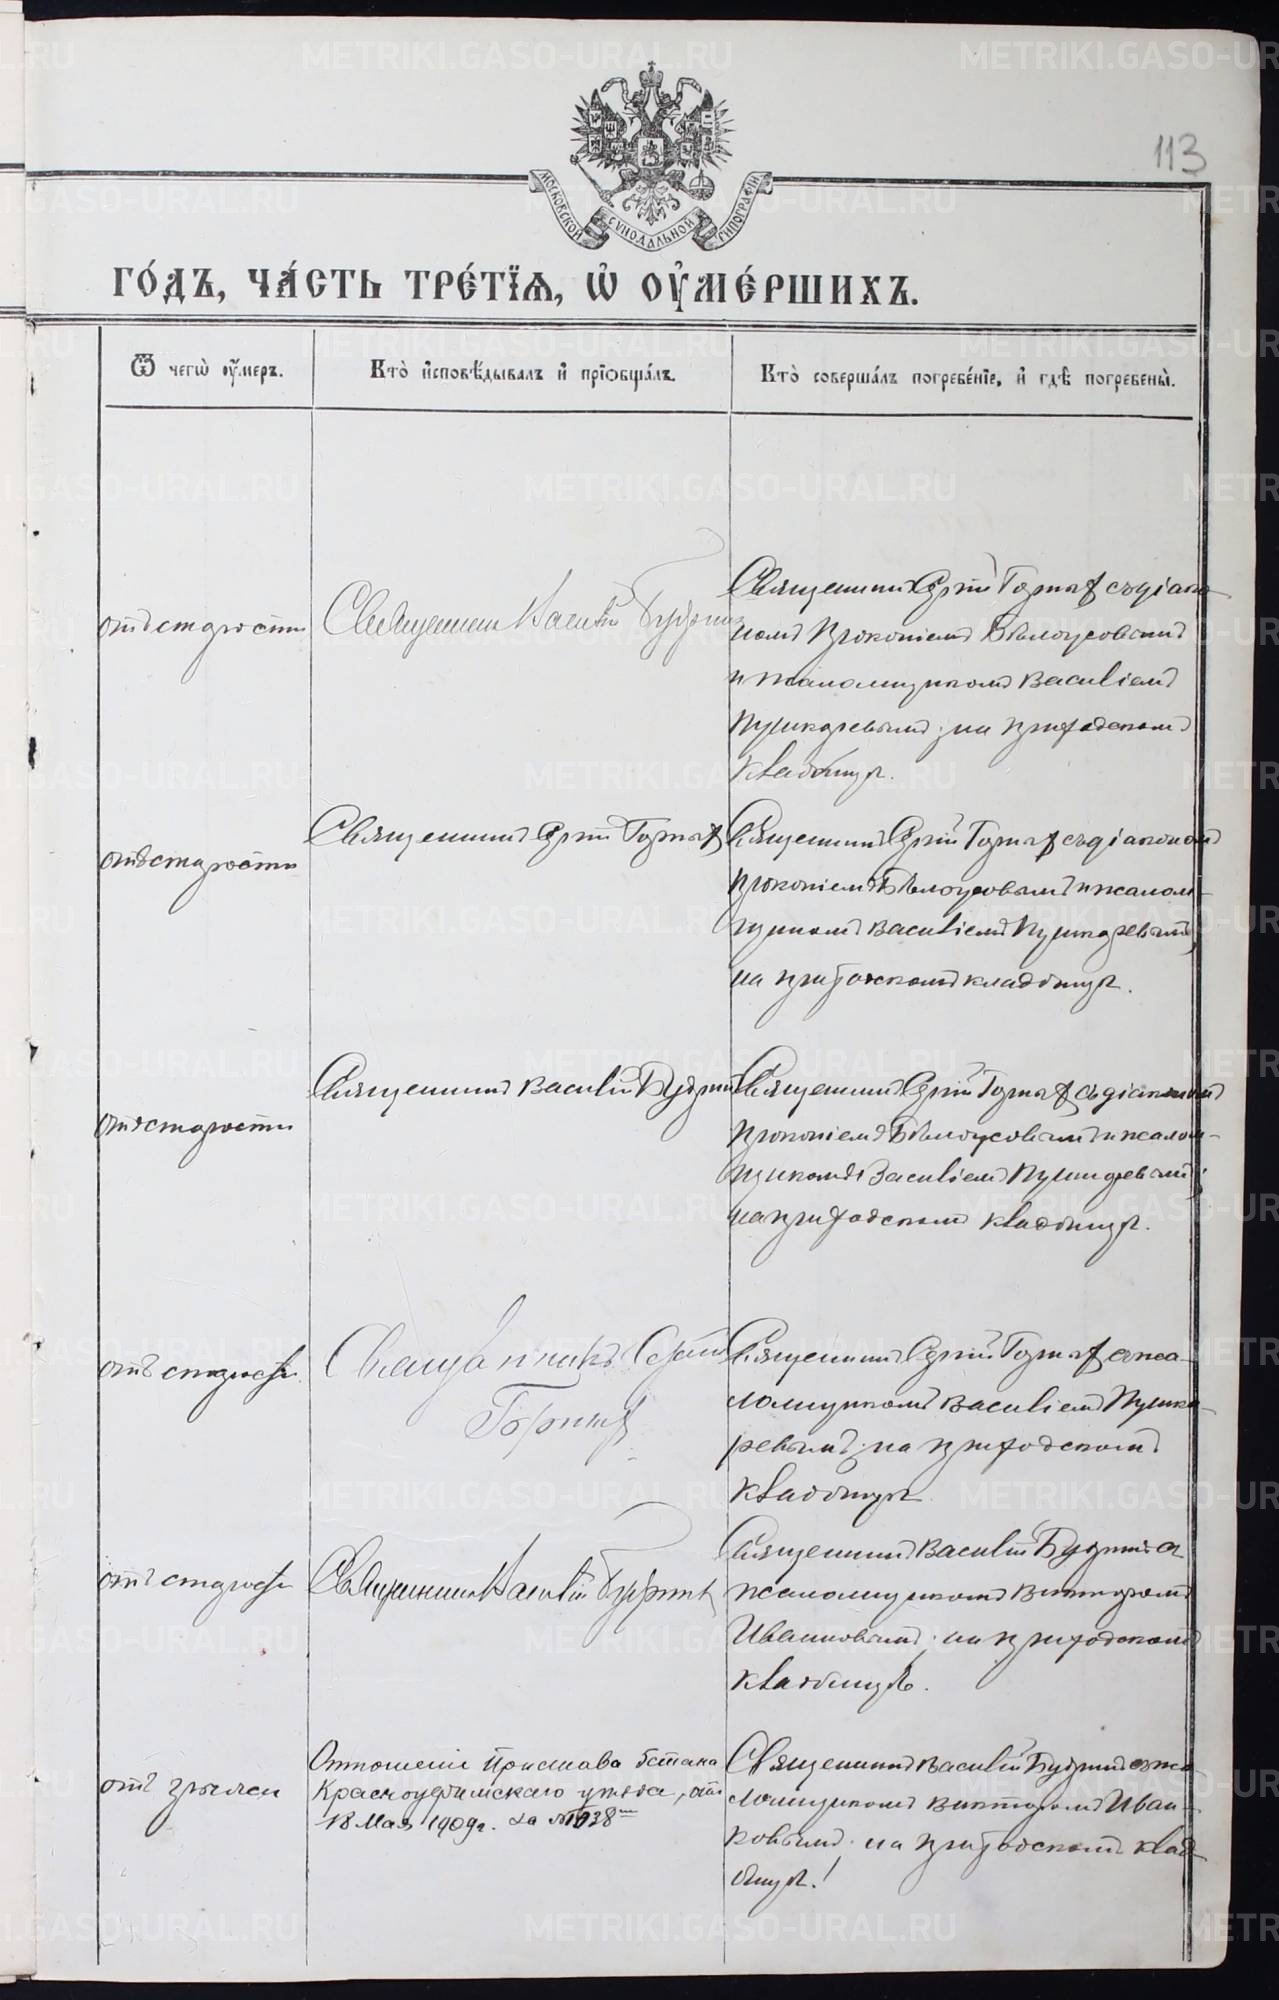 113
МОСКОВСКОЙ СѴНОДАЛЬНОЙ ТИПОГРАФІИ
ГО́ДЪ, ЧА́СТЬ ТРЕ́ТІѦ, Ѡ҆ ОУ҆МЕ́РШИХЪ.
Ѿ чегѡ̀ оу҆́меръ.
Кто̀ и҆сповѣ́дывалъ и҆ прїѡбща́лъ.
Кто̀ соверша́лъ погребе́нїе, и҆ гдѣ̀ погребены̀.
отъ старости
Священникъ Василій Будринъ
Священникъ Сергій Горныхъ съ діако-
номъ Прокопіемъ Бѣлоусовымъ
и псаломщикомъ Василіемъ
Пушкаревымъ; на приходскомъ
кладбищѣ.
отъ старости
Священникъ Сергій Горныхъ
Священникъ Сергій Горныхъ съ діакономъ
Прокопіемъ Бѣлоусовымъ и псалом-
щикомъ Василіемъ Пушкаревымъ;
на приходскомъ кладбищѣ.
отъ старости
Священникъ Василій Будринъ
Священникъ Сергій Горныхъ съ діакономъ
Прокопіемъ Бѣлоусовымъ и псалом-
щикомъ Василіемъ Пушкаревымъ;
на приходскомъ кладбищѣ.
отъ старости
Священникъ Сергій
Горныхъ
Священникъ Сергій Горныхъ с пса-
ломщикомъ Василіемъ Пушка-
ревымъ; на приходскомъ
кладбищѣ.
отъ старости
Священникъ Василій Будринъ
Священникъ Василій Будринъ с
псаломщикомъ Викторомъ
Иванковымъ; на приходскомъ
кладбищѣ.
отъ грыжи
Отношеніе Пристава 5 стана
Красноуфимскаго уѣзда, отъ
18 Мая 1909 г. за № 1038
Священникъ Василій Будринъ с пса
ломщикомъ Викторомъ Иван-
ковымъ; на приходскомъ клад-
бищѣ.
METRIKI.GASO-URAL.RU